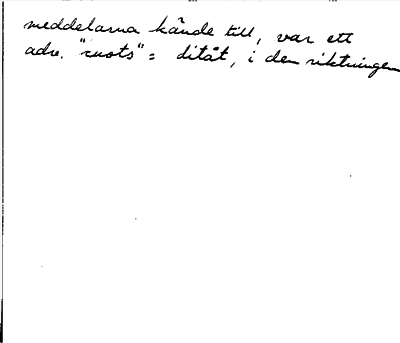 meddelarna kände till, var ett
adv. "ruots" = ditåt, i den riktningen